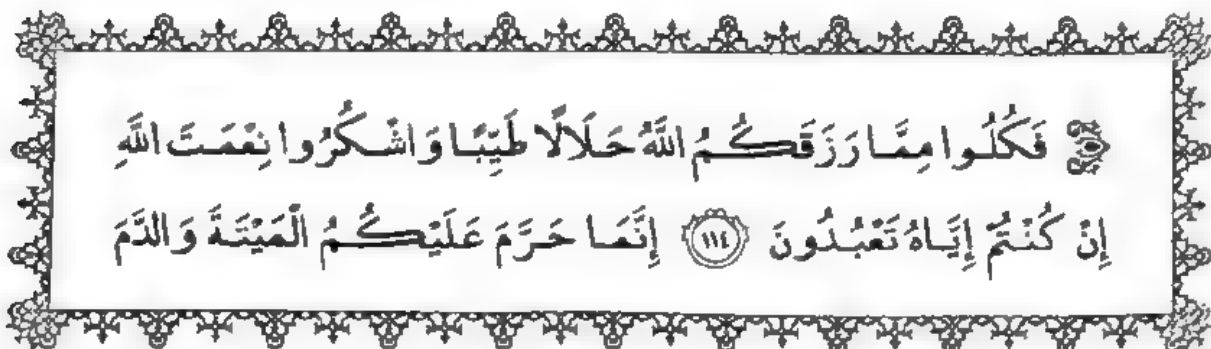 ۞ فَكُلُوا مِمَّا رَزَقَكُمُ اللَّهُ حَلَالًا طَيِّبًا وَاشْكُرُوا نِعْمَتَ اللَّهِ
إِنْ كُنْتُمْ إِيَّاهُ تَعْبُدُونَ ١١٤ إِنَّمَا حَرَّمَ عَلَيْكُمُ الْمَيْتَةَ وَالدَّمَ